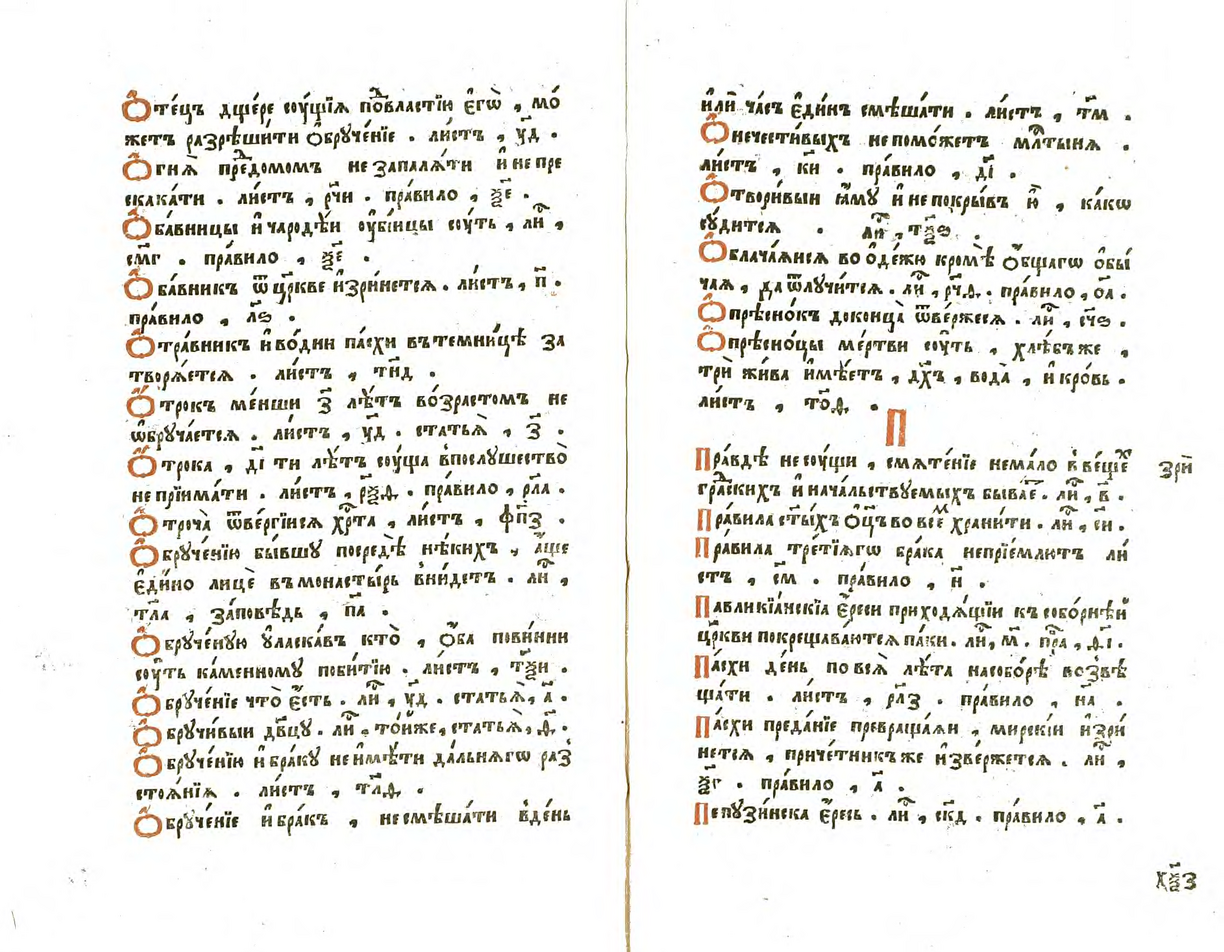 Ѻ҆те́цъ дщере сꙋ́щїѧ по́властїю є҆гѡ̀ , мо́
жетъ разрѣши́ти ѻ҆брꙋче́нїе . ли́стъ , у҃д .
Ѻ҆гнѧ̀ пред̾домомъ не запалѧ́ти и҆ не пре
скака́ти . ли́стъ , рч҃и . пра́вило , ѯ҃е .
Ѻ҆ба́вницы и҆ чародѣ́и оу҆бі́йцы сꙋ́ть , ли́ ,
см҃г . пра́вило , ѯ҃е .
Ѻ҆ба́вникъ ѿ цр҃кве и҆зри́нетсѧ . ли́стъ , п҃ .
пра́вило , л҃ѕ .
Ѻ҆тра́вникъ и҆ во́дни па́схи въ темни́цѣ за
творѧ́етсѧ . ли́стъ , тн҃д .
Ѻ҆́трокъ ме́нши з҃ лѣ́тъ во́зрастомъ не
ѡ҆брꙋча́етсѧ . ли́стъ , у҃д . статьѧ̀ , з҃ .
Ѻ҆́трока , д҃і ти лѣ́тъ сꙋ́ща в̾послꙋшество̀
не прїима́ти . ли́стъ , рѯ҃д . пра́вило , рл҃а .
Ѻ҆троча̀ ѿве́ргїисѧ хрⷭ҇та , ли́стъ , фп҃з .
Ѻ҆брꙋче́нїю бы́вшꙋ посредѣ̀ нѣ́кихъ , а҆́ще
є҆ди́но лицѐ въ монасты́рь вни́детъ . ли́ ,
тл҃а , за́повѣдь , п҃а .
Ѻ҆брꙋче́нꙋю ᲂу҆ласка́въ кто̀ , ѻ҆́ба пови́нни
сꙋ́ть ка́менномꙋ поби́тїю . ли́стъ , тѯ҃и .
Ѻ҆брꙋче́нїе что̀ є҆́сть . ли́ , у҃д . статьѧ̀ , а҃ .
Ѻ҆брꙋчи́выи дв҃цꙋ . ли́ , то́йже , статьѧ̀ , д҃ .
Ѻ҆брꙋче́нїю и҆ бра́кꙋ не и҆мѣ́ти да́льнѧгѡ раз
стоѧ́нїѧ . ли́стъ , тл҃д .
Ѻ҆брꙋче́нїе и҆ бра́къ , не смѣша́ти в̾де́нь
и҆лѝ ча́съ є҆ди́нъ смѣша́ти . ли́стъ , тм҃ .
Ѻ҆ нечести́выхъ не помо́жетъ млⷭ҇тынѧ .
ли́стъ , к҃и . пра́вило , д҃і .
Ѻ҆твори́выи ꙗ҆́мꙋ и҆ не покры́въ ю҆̀ , ка́кѡ
сꙋ́дитсѧ . ли́ , тѯ҃ѕ .
Ѻ҆блача́ѧисѧ во ѻ҆де́жю кромѣ̀ ѻ҆́бщагѡ ѻ҆бы́
чаѧ , да ѿлꙋчи́тсѧ . ли́ , рч҃д . пра́вило , о҃а .
Ѻ҆прѣсно́къ доконца̀ ѿве́ржесѧ . ли́ , сч҃ѕ .
Ѻ҆прѣсно́цы ме́ртви сꙋ́ть , хлѣ́бъ же ,
трѝ жива и҆мѣ́етъ , дх҃ъ , вода̀ , и҆ кро́вь .
ли́стъ , то҃д .
П
Пра́вдѣ не сꙋ́щи , смѧте́нїе нема́ло в̾ ве́щеⷯ
гра́скихъ и҆ нача́льствꙋемыхъ быва́е . ли́ , в҃ .
зрѝ
Пра́вила ст҃ы́хъ ѻ҆ц҃ъ во всеⷨ храни́ти . ли́ , с҃и .
Пра́вила тре́тїѧгѡ бра́ка непрїе́млютъ ли́
стъ , см҃ . пра́вило , н҃ .
Павликїа́нскїѧ є҆́реси приходѧ́щїи къ собо́рнѣй
цр҃кви покреща́ваютсѧ па́ки . ли́ , м҃ . пра́ , д҃і .
Па́схи де́нь по всѧ̀ лѣ́та на собо́рѣ возвѣ
ща́ти . ли́стъ , рл҃з . пра́вило , н҃а .
Па́схи преда́нїе превраща́ѧи , мирскі́и и҆зри́
нетсѧ , приче́тникъ же и҆зве́ржетсѧ . ли́ ,
ѯ҃г . пра́вило , а҃ .
Пепꙋзи́нска є҆́ресь . ли́ , ск҃д . пра́вило , а҃ .
хѯ҃з